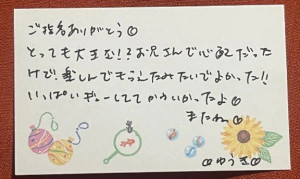 ご指名ありがとう♡
とっても大きな!?お兄さんで心配だった
けど、楽しんでもらえたみたいでよかった!!
いっぱいぎゅーしててかわいかったよ♡
またね♡
♡ゆうき♡